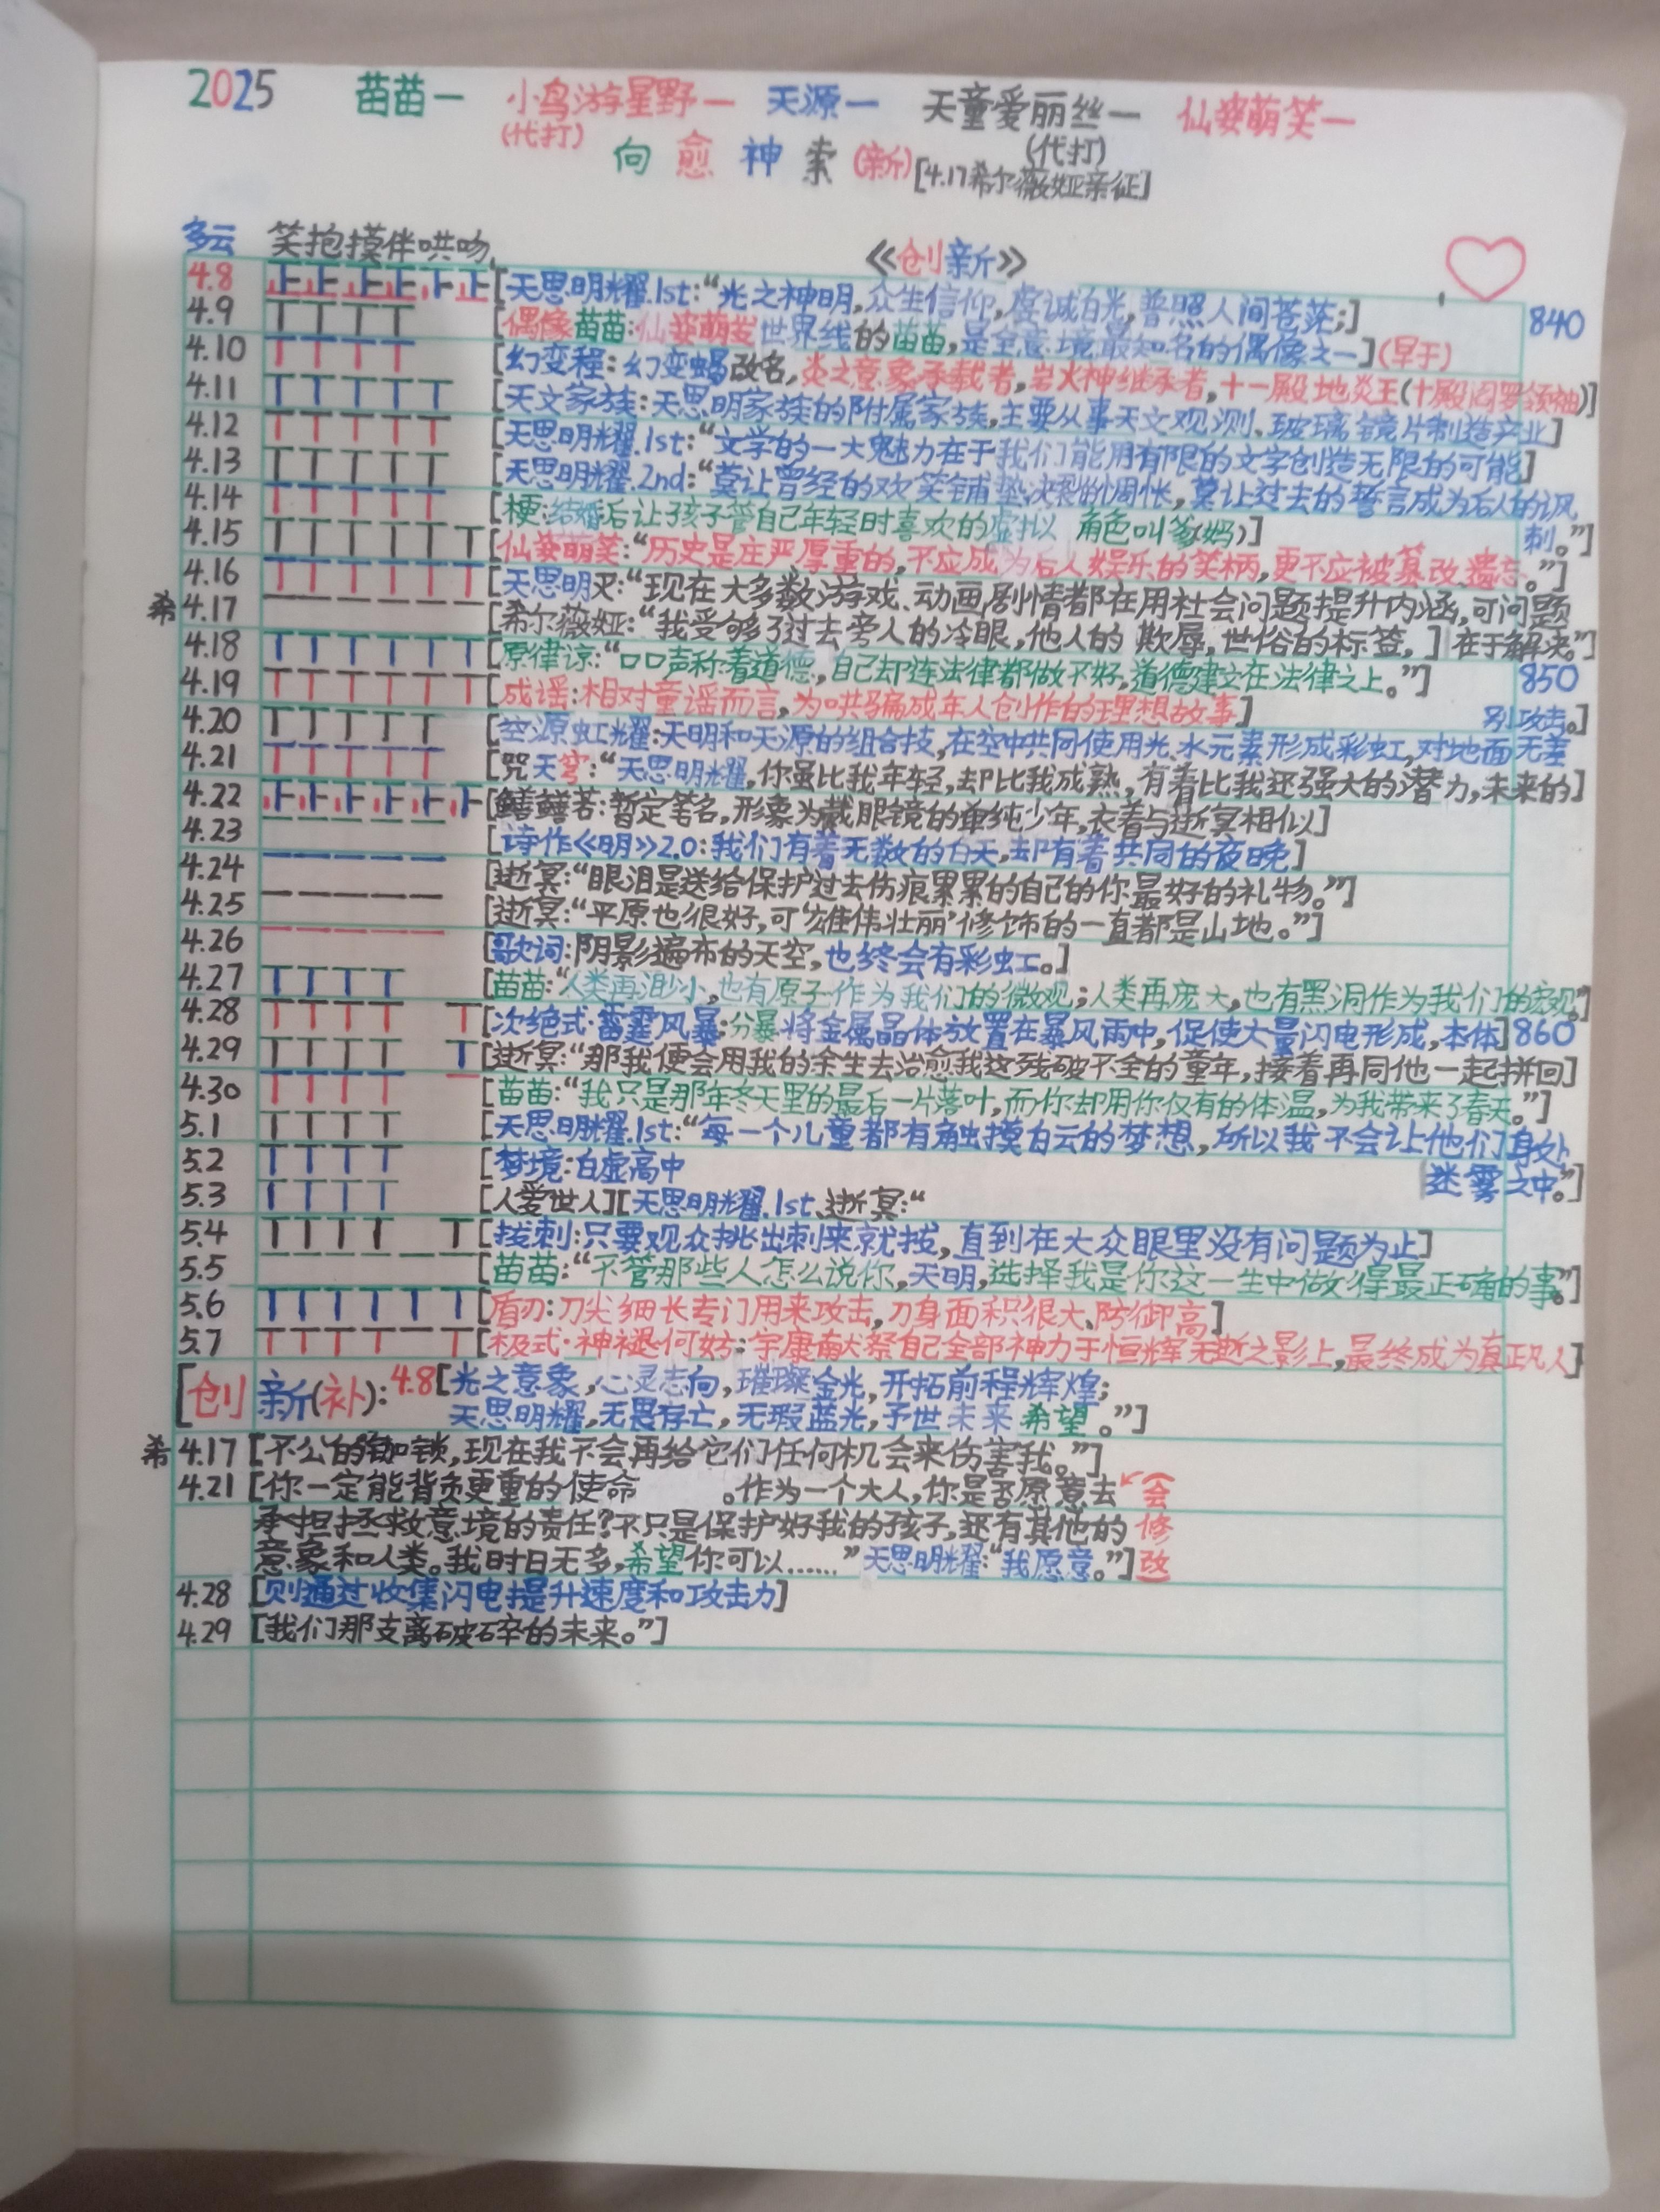 2025 苗苗一 小鸟游星野一 天源一 天童爱丽丝一 仙姿萌笑一
(代打) (代打)
向愈神索(新)[4.17希尔薇娅亲征]
多云 笑抱摸伴哄吻 《创新》
4.8 [天思明耀.1st:“光之神明,众生信仰,虔诚白光,普照人间苍茫;]
840
4.9 [偶像苗苗:仙姿萌发世界线的苗苗,是全意境最知名的偶像之一](早于)
4.10 [幻变程:幻变蝎改名,炎之意象承载者,岩火神继承者,十一殿地炎王(十殿阎罗领袖)]
4.11 [天文家族:天思明家族的附属家族,主要从事天文观测、玻璃镜片制造产业]
4.12 [天思明耀.1st:“文学的一大魅力在于我们能用有限的文字创造无限的可能]
4.13 [天思明耀.2nd:“莫让曾经的欢笑铺垫决裂的惆怅,莫让过去的誓言成为后人的讽
刺。”]
4.14 [梗:结婚后让孩子管自己年轻时喜欢的虚拟 角色叫爹(妈)]
4.15 [仙姿萌笑:“历史是庄严厚重的,不应成为后人娱乐的笑柄,更不应被篡改遗忘。”]
4.16 [天思明灾:“现在大多数游戏、动画剧情都在用社会问题提升内涵,可问题
在于解决。”]
希 4.17 [希尔薇娅:“我受够了过去旁人的冷眼,他人的 欺辱,世俗的标签,]
4.18 [原律谅:“口口声称着道德,自己却连法律都做不好,道德建立在法律之上。”]
850
4.19 [成谣:相对童谣而言,为哄骗成年人创作的理想故事]
4.20 [空源虹耀:天明和天源的组合技,在空中共同使用光、水元素形成彩虹,对地面无差
别攻击。]
4.21 [咒天穹:“天思明耀,你虽比我年轻,却比我成熟,有着比我还强大的潜力,未来的]
4.22 [鳝鳝若:暂定笔名,形象为戴眼镜的单纯少年,衣着与逝冥相似]
4.23 [诗作《明》2.0:我们有着无数的白天,却有着共同的夜晚]
4.24 [逝冥:“眼泪是送给保护过去伤痕累累的自己的你最好的礼物。”]
4.25 [逝冥:“平原也很好,可‘雄伟壮丽’修饰的一直都是山地。”]
4.26 [歌词:阴影遍布的天空,也终会有彩虹。]
4.27 [苗苗:“人类再渺小,也有原子作为我们的微观;人类再庞大,也有黑洞作为我们的宏观”]
4.28 [次绝式·雷霆风暴:分暴将金属晶体放置在暴风雨中,促使大量闪电形成,本体]
860
4.29 [逝冥:“那我便会用我的余生去治愈我这残破不全的童年,接着再同他一起拼回]
4.30 [苗苗:“我只是那年冬天里的最后一片落叶,而你却用你仅有的体温,为我带来了春天。”]
5.1 [天思明耀.1st:“每一个儿童都有触摸白云的梦想,所以我不会让他们身处
迷雾之中。”]
5.2 [梦境:白虚高中
5.3 [人爱世人][天思明耀.1st、逝冥:“
5.4 [拔刺:只要观众挑出刺来就拔,直到在大众眼里没有问题为止]
5.5 [苗苗:“不管那些人怎么说你,天明,选择我是你这一生中做得最正确的事。”]
5.6 [盾刃:刀尖细长专门用来攻击,刀身面积很大、防御高]
5.7 [极式·神褪何妨:宇康献祭自己全部神力于恒辉无逝之影上,最终成为真正凡人]
[创新(补):4.8[光之意象,心灵志向,璀璨金光,开拓前程辉煌;
天思明耀,无畏存亡,无瑕蓝光,予世未来希望。”]
希 4.17 [不公的枷锁,现在我不会再给它们任何机会来伤害我。”]
4.21 [你一定能背负更重的使命 。作为一个大人,你是否愿意去
承担拯救意境的责任?不只是保护好我的孩子,还有其他的
意象和人类。我时日无多,希望你可以……” 天思明耀:“我愿意。”]
(会修改)
4.28 [则通过收集闪电提升速度和攻击力]
4.29 [我们那支离破碎的未来。”]